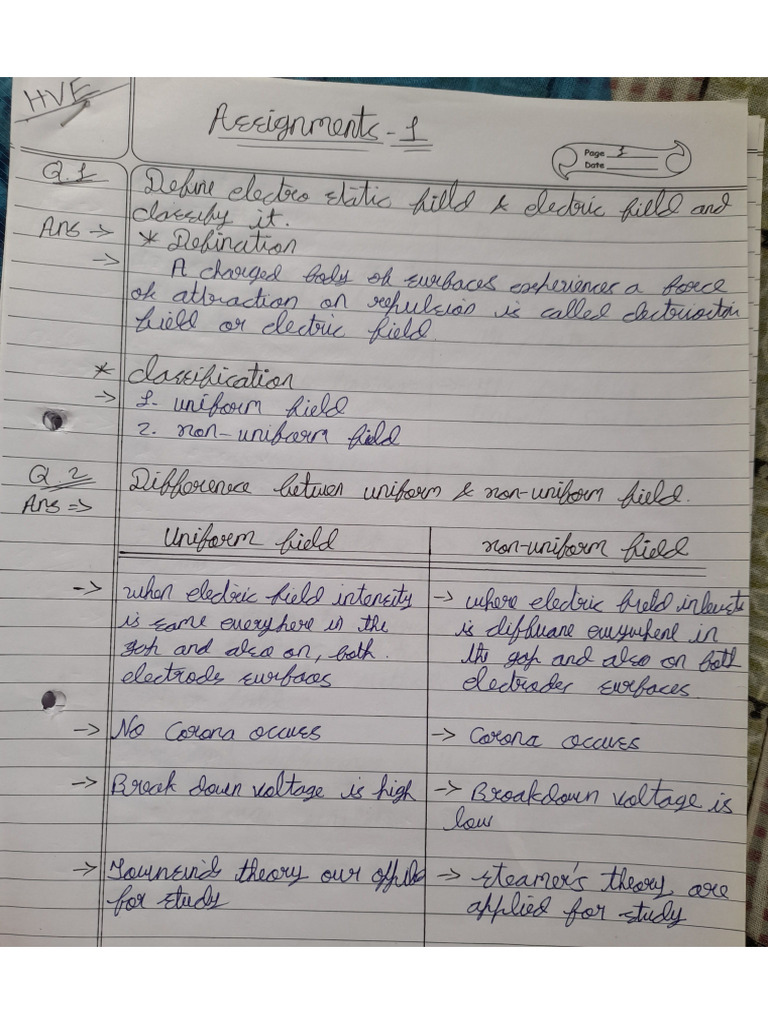 HVE
Assignments - 1
Page 1
Date
Q.1 Define electro static field & electric field and
classify it.
Ans → * Defination
→ A charged body of surfaces experiences a force
of attraction on repulsion is called
field or electric field.
* classification
→ 1. uniform field
2. non-uniform field
Q.2 Difference between uniform & non-uniform field.
Ans =>
Uniform field
non-uniform field
→ when electric field intensity
is same everyhere in the
gap and also on, both
electrods surfaces
→ where electric field
is everywhere in
the gap and also on both
electrodes surfaces.
→ No Corona occurs
→ Corona occurs
→ Break down voltage is high
→ Breakdown voltage is
low
→ theory
for study
→ steamer's theory, are
applied for study